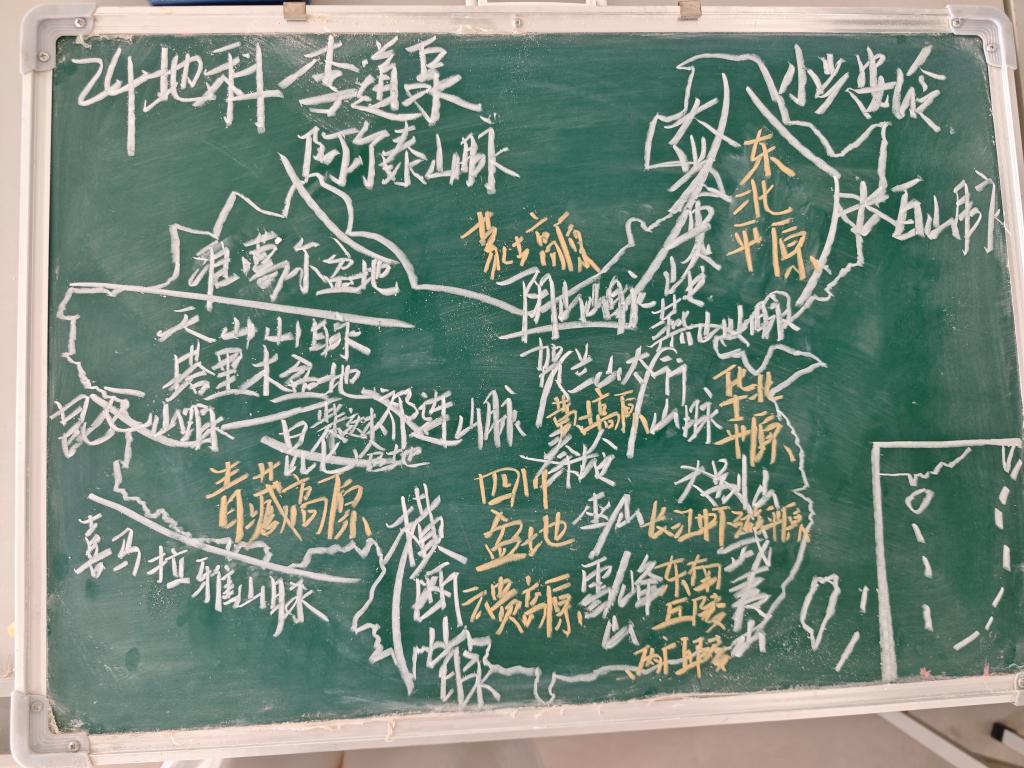 24地科 李道泉
阿尔泰山脉
小兴安岭
大兴安岭
东北平原
长白山脉
内蒙古高原
准噶尔盆地
阴山山脉
燕山山脉
天山山脉
塔里木盆地
贺兰山
太行山脉
华北平原
昆仑山脉
柴达木盆地
祁连山脉
黄土高原
秦岭
青藏高原
四川盆地
巫山
大别山
长江中下游平原
喜马拉雅山脉
横断山脉
云贵高原
雪峰山
东南丘陵
武夷山
两广丘陵